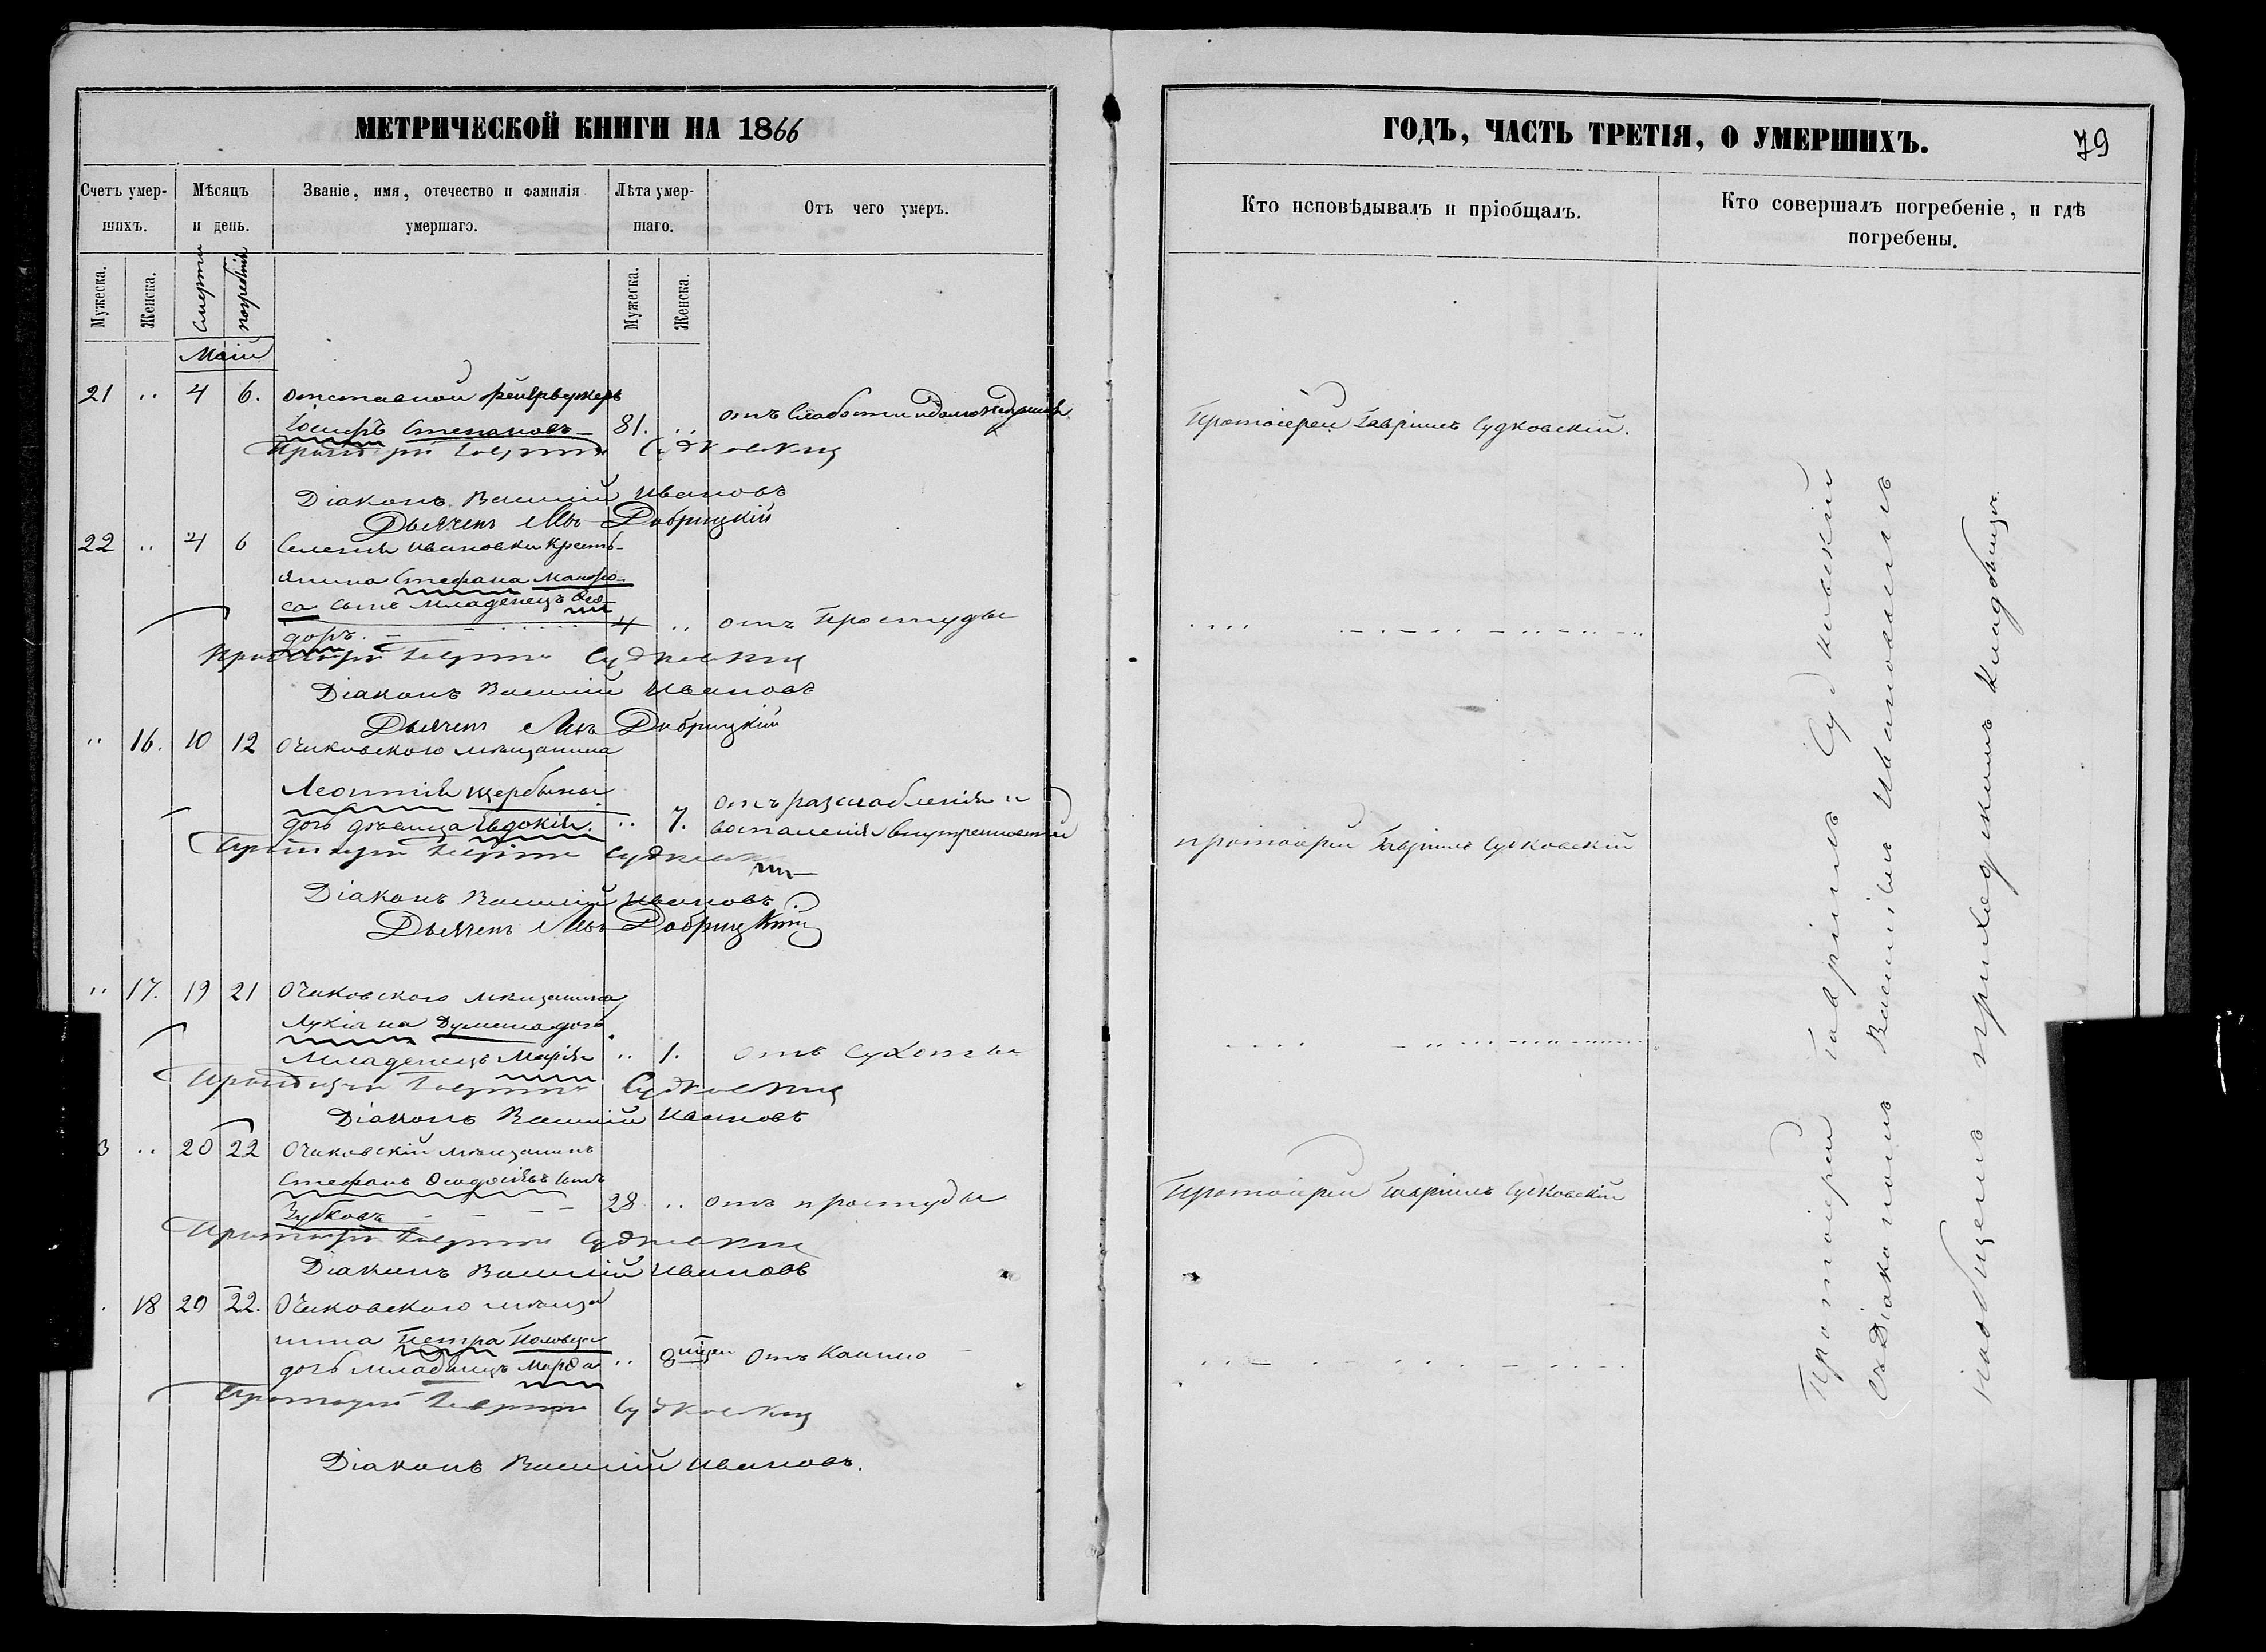 МЕТРИЧЕСКОЙ КНИГИ НА 1866
Счетъ умер-
шихъ.
Мѣсяцъ
и день.
Званіе, имя, отечество и фамилія
умершаго.
Лѣта умер-
шаго.
Отъ чего умеръ.
Мужеска.
Женска.
Смерти
погребенія
Мужеска.
Женска.
Маій
21 .. 4 6. Отставной фейерверкеръ
Іосифъ Степановъ 81. .. отъ слабости и
Протоіерей Гавріилъ Судковскій
Діаконъ Василій Ивановъ
Дьячекъ Левъ Добрицкій
22 .. 4 6 Селенія Ивановки Кресть-
янина Стефана Манфо-
са сынъ младенецъ Ѳео-
доръ. 4 .. отъ простуды
Протоіерей Гавріилъ Судковскій
Діаконъ Василій Ивановъ
Дьячекъ Левъ Добрицкій
.. 16. 10 12 Очаковского мѣщанина
Леонтія Щербины
дочь дѣвица Евдокія. .. 7. отъ разслабленія и
воспаленія внутренностей
Протоіерей Гавріилъ Судковскій
Діаконъ Василій Ивановъ
Дьячекъ Левъ Добрицкій
.. 17. 19 21 Очаковского мѣщанина
Лукіана дочь
Младенецъ Марія .. 1. отъ сухоты
Протоіерей Гавріилъ Судковскій
Діаконъ Василій Ивановъ
3 .. 20 22 Очаковскій мѣщанинъ
Стефанъ Ѳеодосіевъ сынъ
Зубковъ 28 .. отъ простуды
Протоіерей Гавріилъ Судковскій
Діаконъ Василій Ивановъ
. 18 20 22. Очаковского мѣща
нина Петра
дочь младенецъ Марѳа .. 8 отъ кашлю
Протоіерей Гавріилъ Судковскій
Діаконъ Василій Ивановъ.
ГОДЪ, ЧАСТЬ ТРЕТІЯ, О УМЕРШИХЪ. 79
Кто исповѣдывалъ и пріобщалъ.
Кто совершалъ погребеніе, и гдѣ
погребены.
Протоіерей Гавріилъ Судковскій.
протоіерей Гавріилъ Судковскій
Протоіерей Гавріилъ Судковскій
Протоіерей Гавріилъ Судковскій
съ Діакономъ Василіемъ Ивановымъ
на общемъ приходскомъ кладбищѣ.